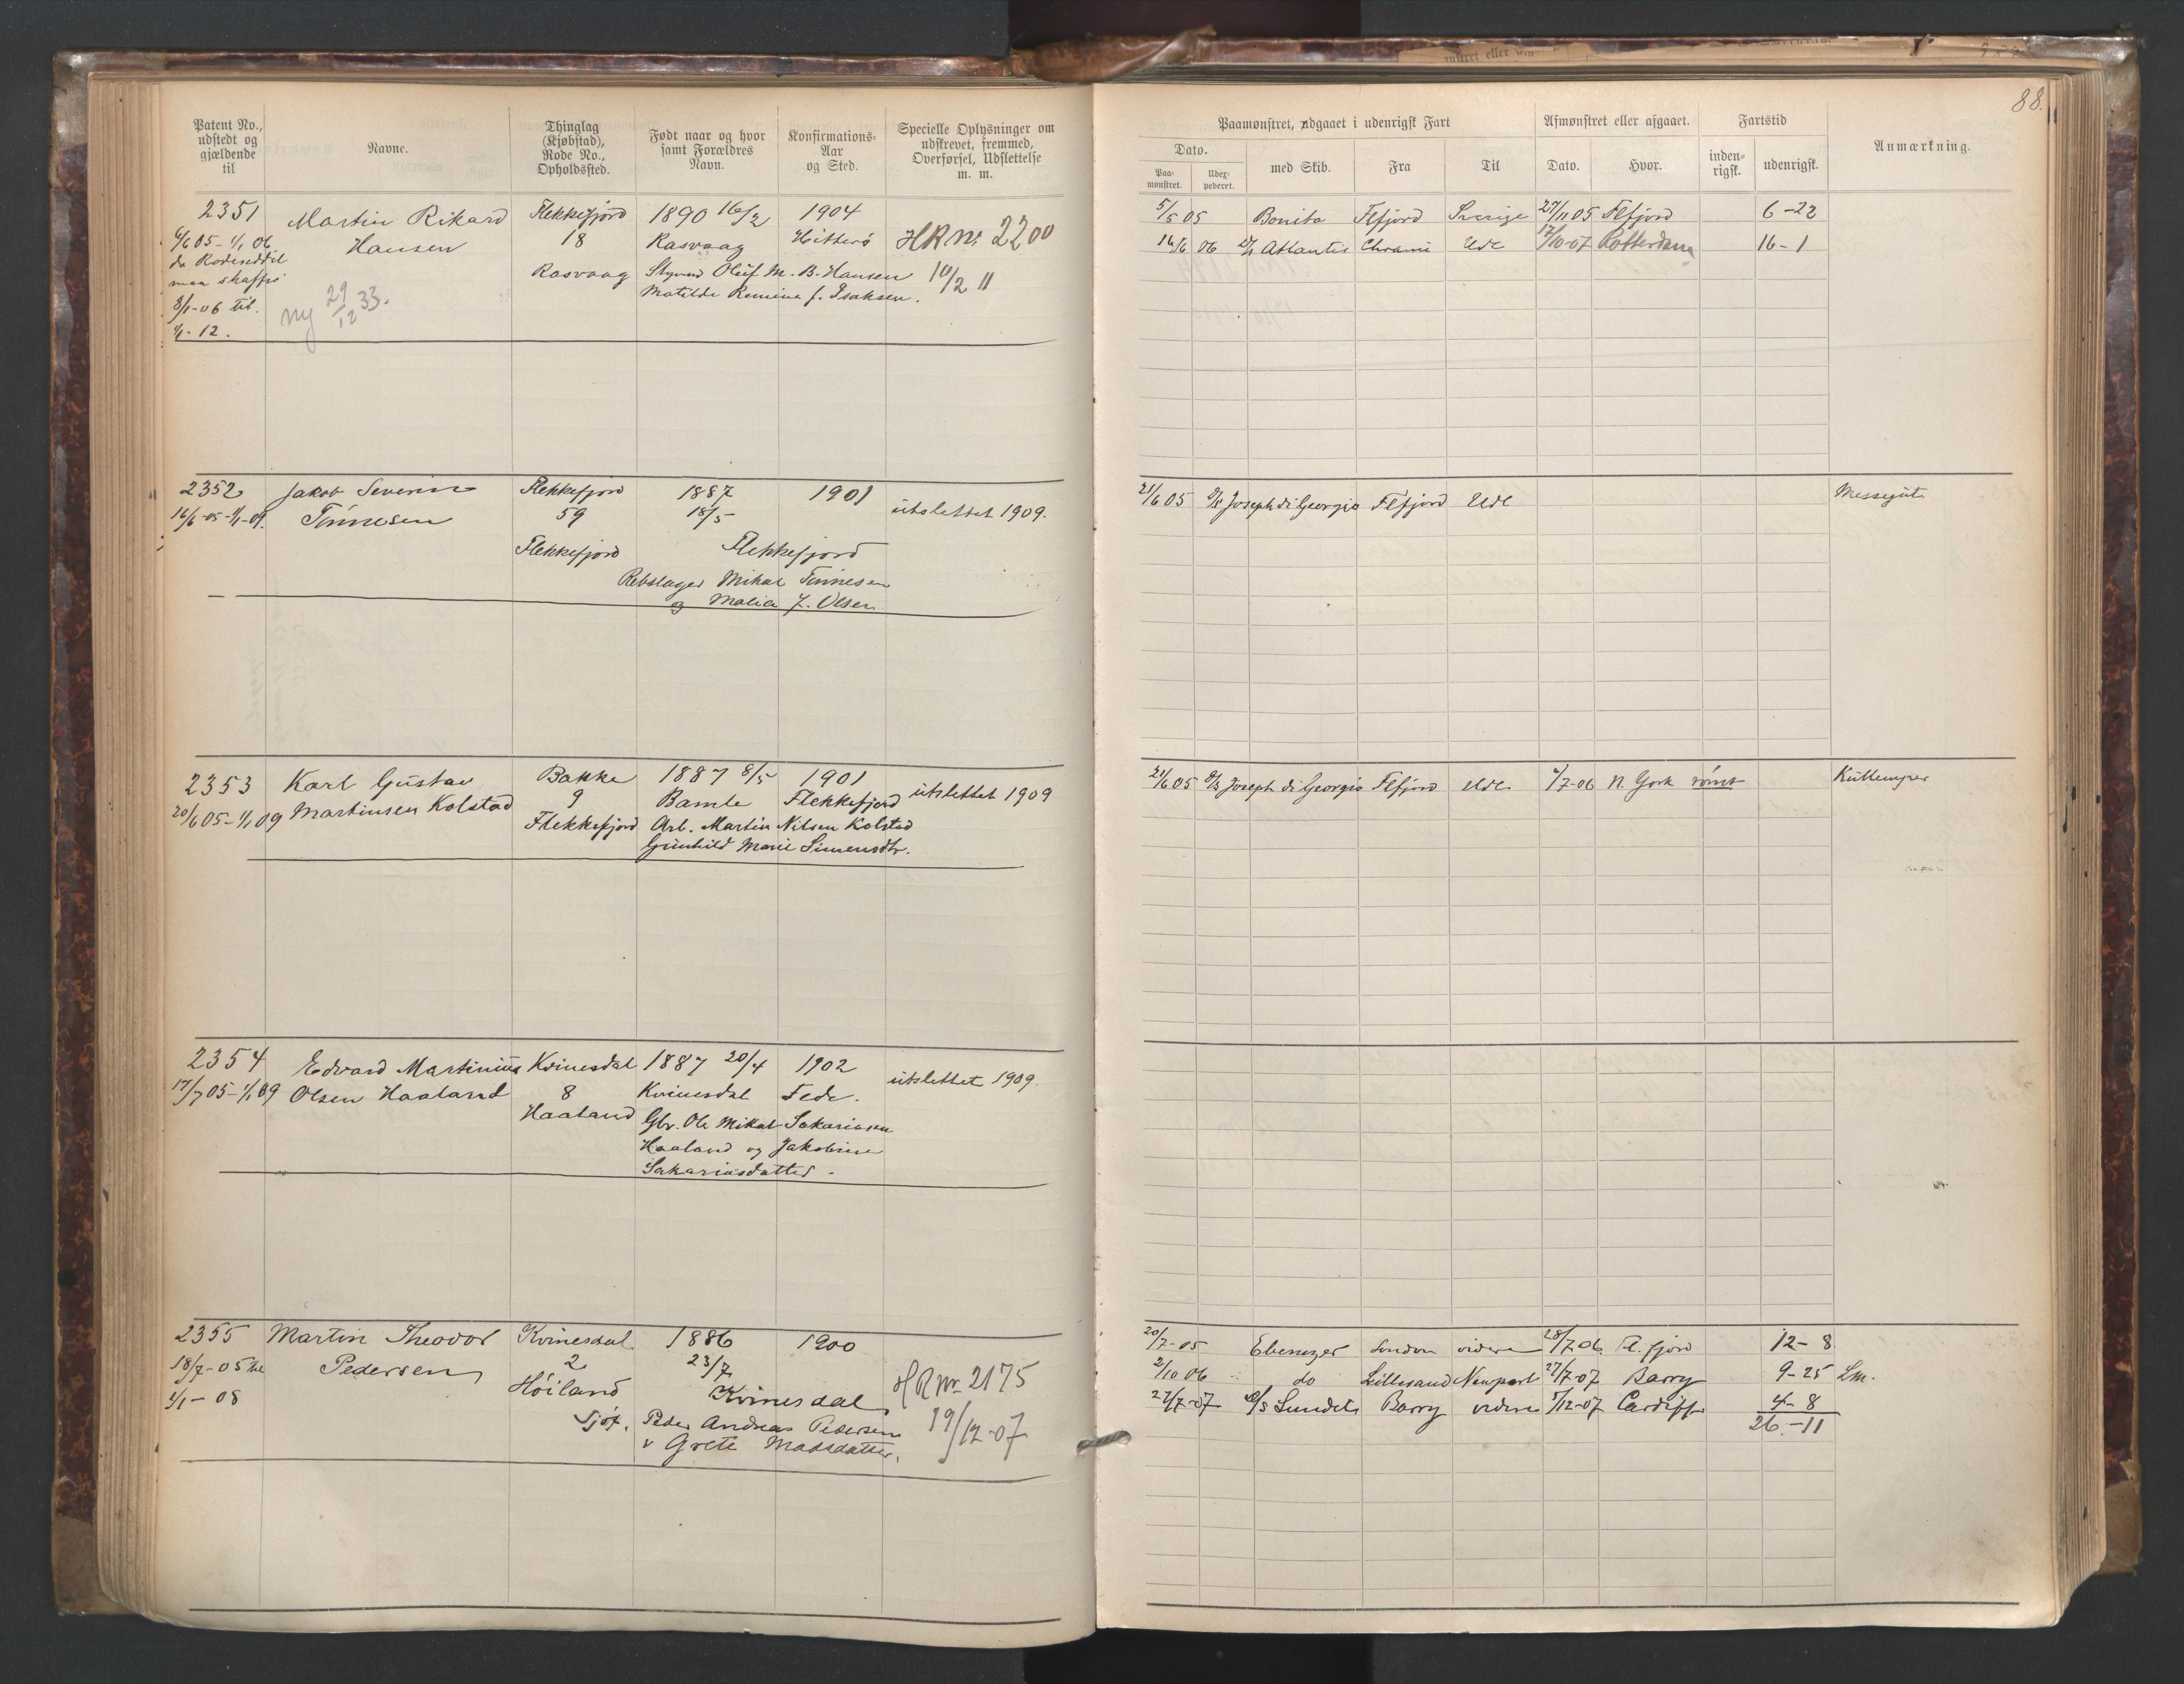 88.
Patent No., udstedt og gjældende til
Navne.
Thinglag (Kjøbstad), Rode No., Opholdssted.
Født naar og hvor samt Forældres Navn.
Konfirmations-Aar og Sted.
Specielle Oplysninger om udskrevet, fremmed, Overførsel, Udslettelse m. m.
Paamønstret, udgaaet i udenrigsk Fart
Dato.
Paamønstret.
Uderpederet.
med Skib.
Fra
Til
Afmønstret eller afgaaet.
Dato.
Hvor.
Fartstid
indenrigsk.
udenrigsk.
Anmærkning.
2351
6/6 05 - 1/1 06
da Rodeseddel
maa skaffes
8/1-06 til
1/1-12.
Martin Rikard
Hansen
ny 29/12 33.
Flekkefjord
18
Rasvaag
1890 16/2
Rasvaag
Styrmd Oluf M. B. Hansen
Matilde Remine f. Isaksen.
1904
Hitterø
HR Nr 2200
10/2 11
5/5 05 Bonita Flfjord Sverige 27/11 05 Flfjord 6-22
16/6 06 Atlantic Chrania Ude 17/10-07 Rotterdam 16-1
2352
16/6-05-1/1-09.
Jakob Severin
Tønnesen
Flekkefjord
59
Flekkefjord
1887
18/5
Flekkefjord
Rebslager Mikal Tønnesen
og Malia f. Olsen
1901
utslettet 1909.
21/6 05 D/S Joseph di Georgio Flfjord Ude
Messegut
2353
20/6 05-1/1 09
Karl Gustav
Martinsen Kolstad
Bakke
9
Flekkefjord
1887 8/5
Bamle
Arb. Martin Nilsen Kolstad
Gunhild Marie Simensdtr.
1901
Flekkefjord
utslettet 1909
21/6 05 D/S Joseph di Georgio Flfjord Ude /7-06 N. York rømt
Kullemper
2354
17/7 05-1/1 09
Edvard Martinius
Olsen Haaland
Kvinesdal
8
Haaland
1887 20/4
Kvinesdal
Gbr. Ole Mikal Sakariasen
Haaland og Jakobine
Sakariasdatter.
1902
Fede.
utslettet 1909.
2355
18/7-05 til
1/1-08
Martin Theodor
Pedersen
Kvinesdal
2
Høiland
1886
23/7
Kvinesdal
Sjøf. Peder Andreas Pedersen
v Grete Madsdatter.
1900
HR Nr. 2175
19/12-07
20/7-05 Ebenezer London videre 28/7 06 Fl.fjord 12-8
2/10 06 do Lillesand Newport 27/7-07 Barry 9-25 Lm.
27/7-07 D/S Sundet Barry videre 5/12-07 Cardiff 4-8
26-11